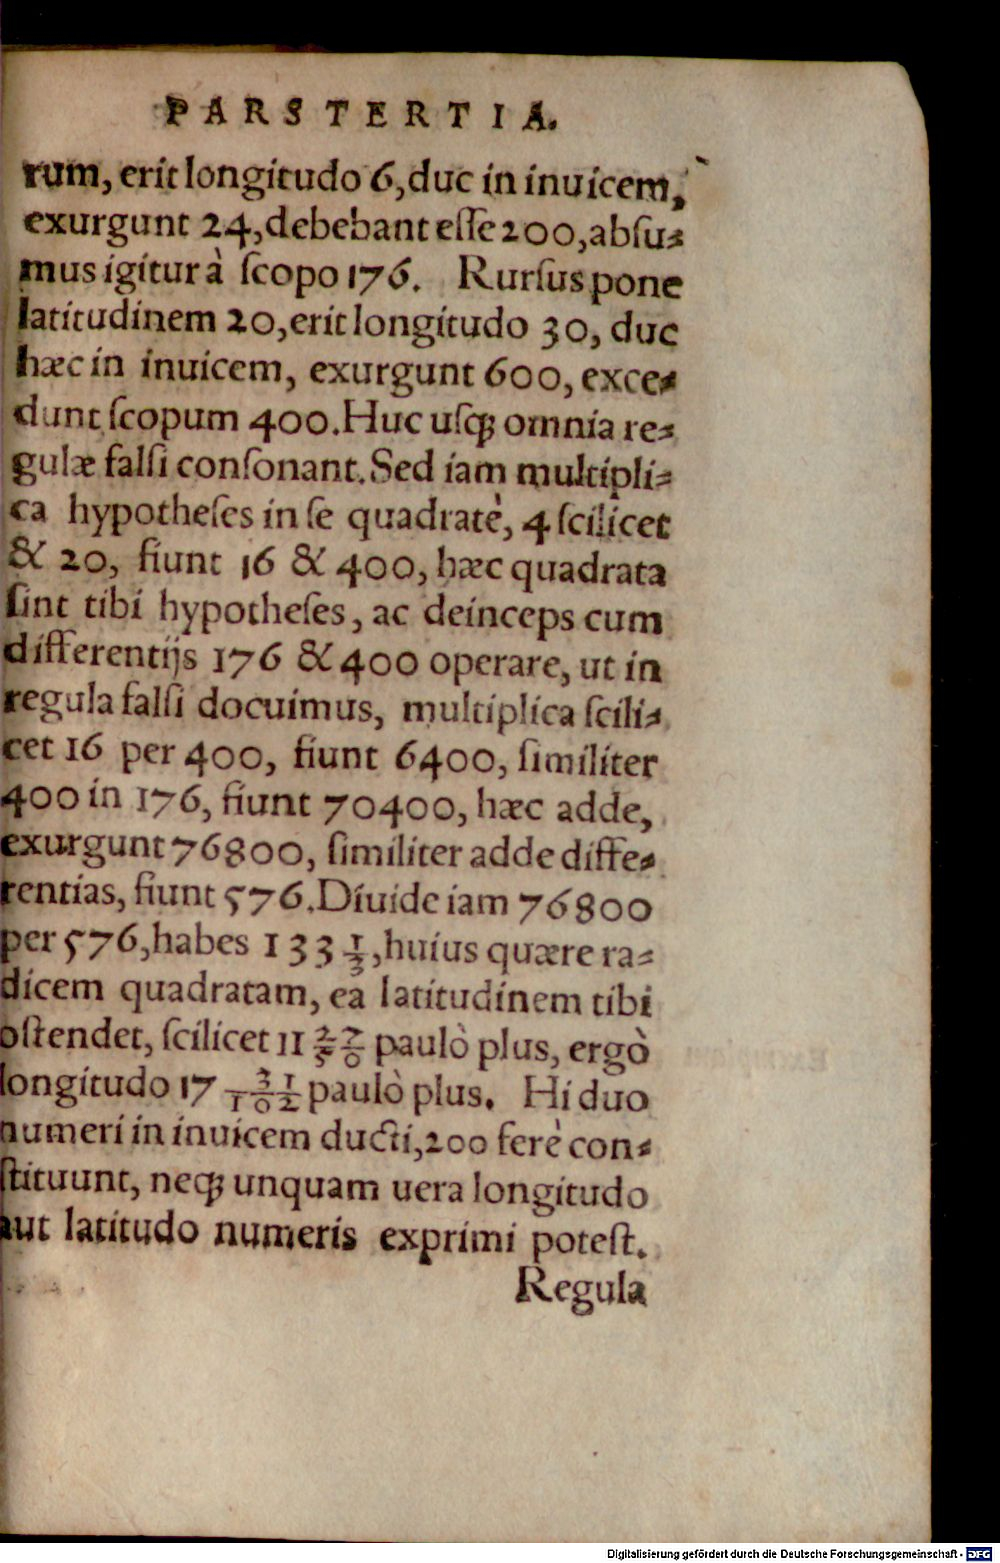 PARS TERTIA.
rum, erit longitudo 6, duc in inuicem,
exurgunt 24, debebant eſſe 200, abſu⸗
mus igitur à ſcopo 176. Rurſus pone
latitudinem 20, erit longitudo 30, duc
hæc in inuicem, exurgunt 600, exce⸗
dunt ſcopum 400. Huc uſqꝫ omnia re⸗
gulæ falſi conſonant. Sed iam multipli⸗
ca hypotheſes in ſe quadratè, 4 ſcilicet
& 20, fiunt 16 & 400, hæc quadrata
ſint tibi hypotheſes, ac deinceps cum
differentijs 176 & 400 operare, ut in
regula falſi docuimus, multiplica ſcili⸗
cet 16 per 400, fiunt 6400, ſimiliter
400 in 176, fiunt 70400, hæc adde,
exurgunt 76800, ſimiliter adde diffe⸗
rentias, fiunt 576. Diuide iam 76800
per 576, habes 133 1/3, huius quære ra⸗
dicem quadratam, ea latitudinem tibi
oſtendet, ſcilicet 11 27/50 paulò plus, ergò
longitudo 17 31/102 paulò plus. Hi duo
numeri in inuicem ducti, 200 ferè con⸗
ſtituunt, neqꝫ unquam uera longitudo
aut latitudo numeris exprimi poteſt.
Regula
Digitalisierung gefördert durch die Deutsche Forschungsgemeinschaft - DFG